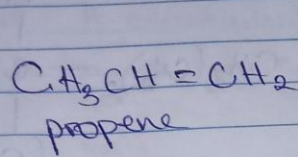 CH₃CH=CH₂
propene